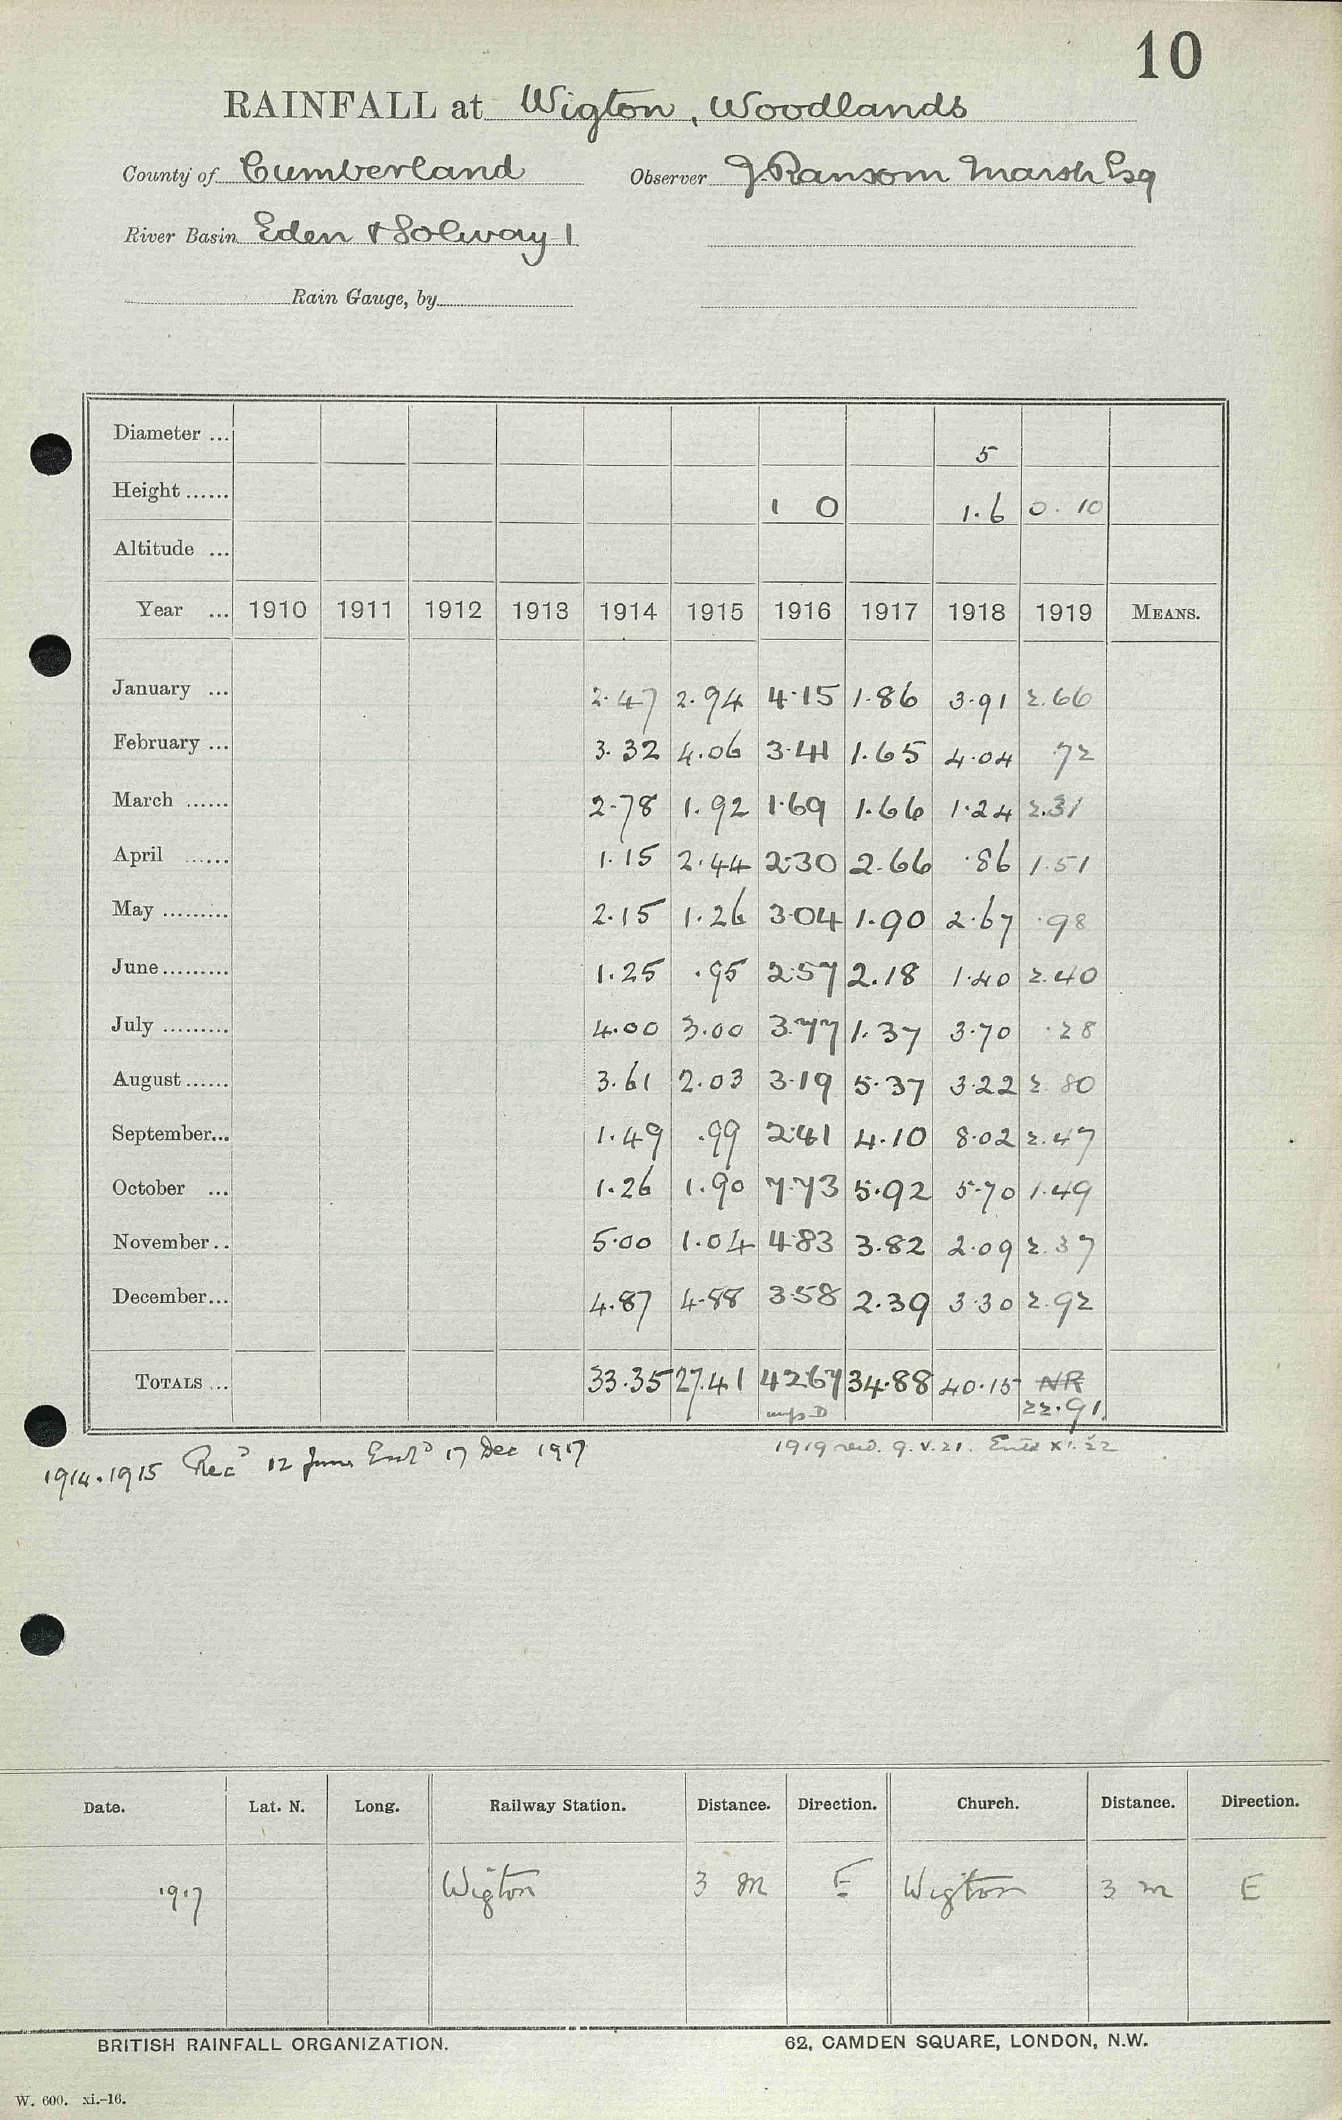 10
RAINFALL at Wigton, Woodlands
County of Cumberland Observer J. Ransom Marsh Esq
River Basin Eden & Solway 1
Rain Gauge, by
Diameter ... 5
Height ...... 1 0 1.6 0.10
Altitude ...
Year ... 1910 1911 1912 1913 1914 1915 1916 1917 1918 1919 MEANS.
January ... 2.47 2.94 4.15 1.86 3.91 2.66
February ... 3.32 4.06 3.41 1.65 4.04 72
March ...... 2.78 1.92 1.69 1.66 1.24 2.31
April ...... 1.15 2.44 2.30 2.66 .86 1.51
May ......... 2.15 1.26 3.04 1.90 2.67 .98
June ......... 1.25 .95 2.57 2.18 1.40 2.40
July ......... 4.00 3.00 3.77 1.37 3.70 .28
August ...... 3.61 2.03 3.19 5.37 3.22 2.80
September... 1.49 .99 2.41 4.10 8.02 2.47
October ... 1.26 1.90 7.73 5.92 5.70 1.49
November.. 5.00 1.04 4.83 3.82 2.09 2.37
December... 4.87 4.88 3.58 2.39 3.30 2.92
TOTALS ... 33.35 27.41 42.67 34.88 40.15 NR
22.91
1919 recd. 9.V.21. Entd XI.22
1914.1915 Recd 12 June Entd 17 Dec 1917
Date. Lat. N. Long. Railway Station. Distance. Direction. Church. Distance. Direction.
1917 Wigton 3 m E Wigton 3 m E
BRITISH RAINFALL ORGANIZATION. 62, CAMDEN SQUARE, LONDON, N.W.
W. 600. xi.-16.